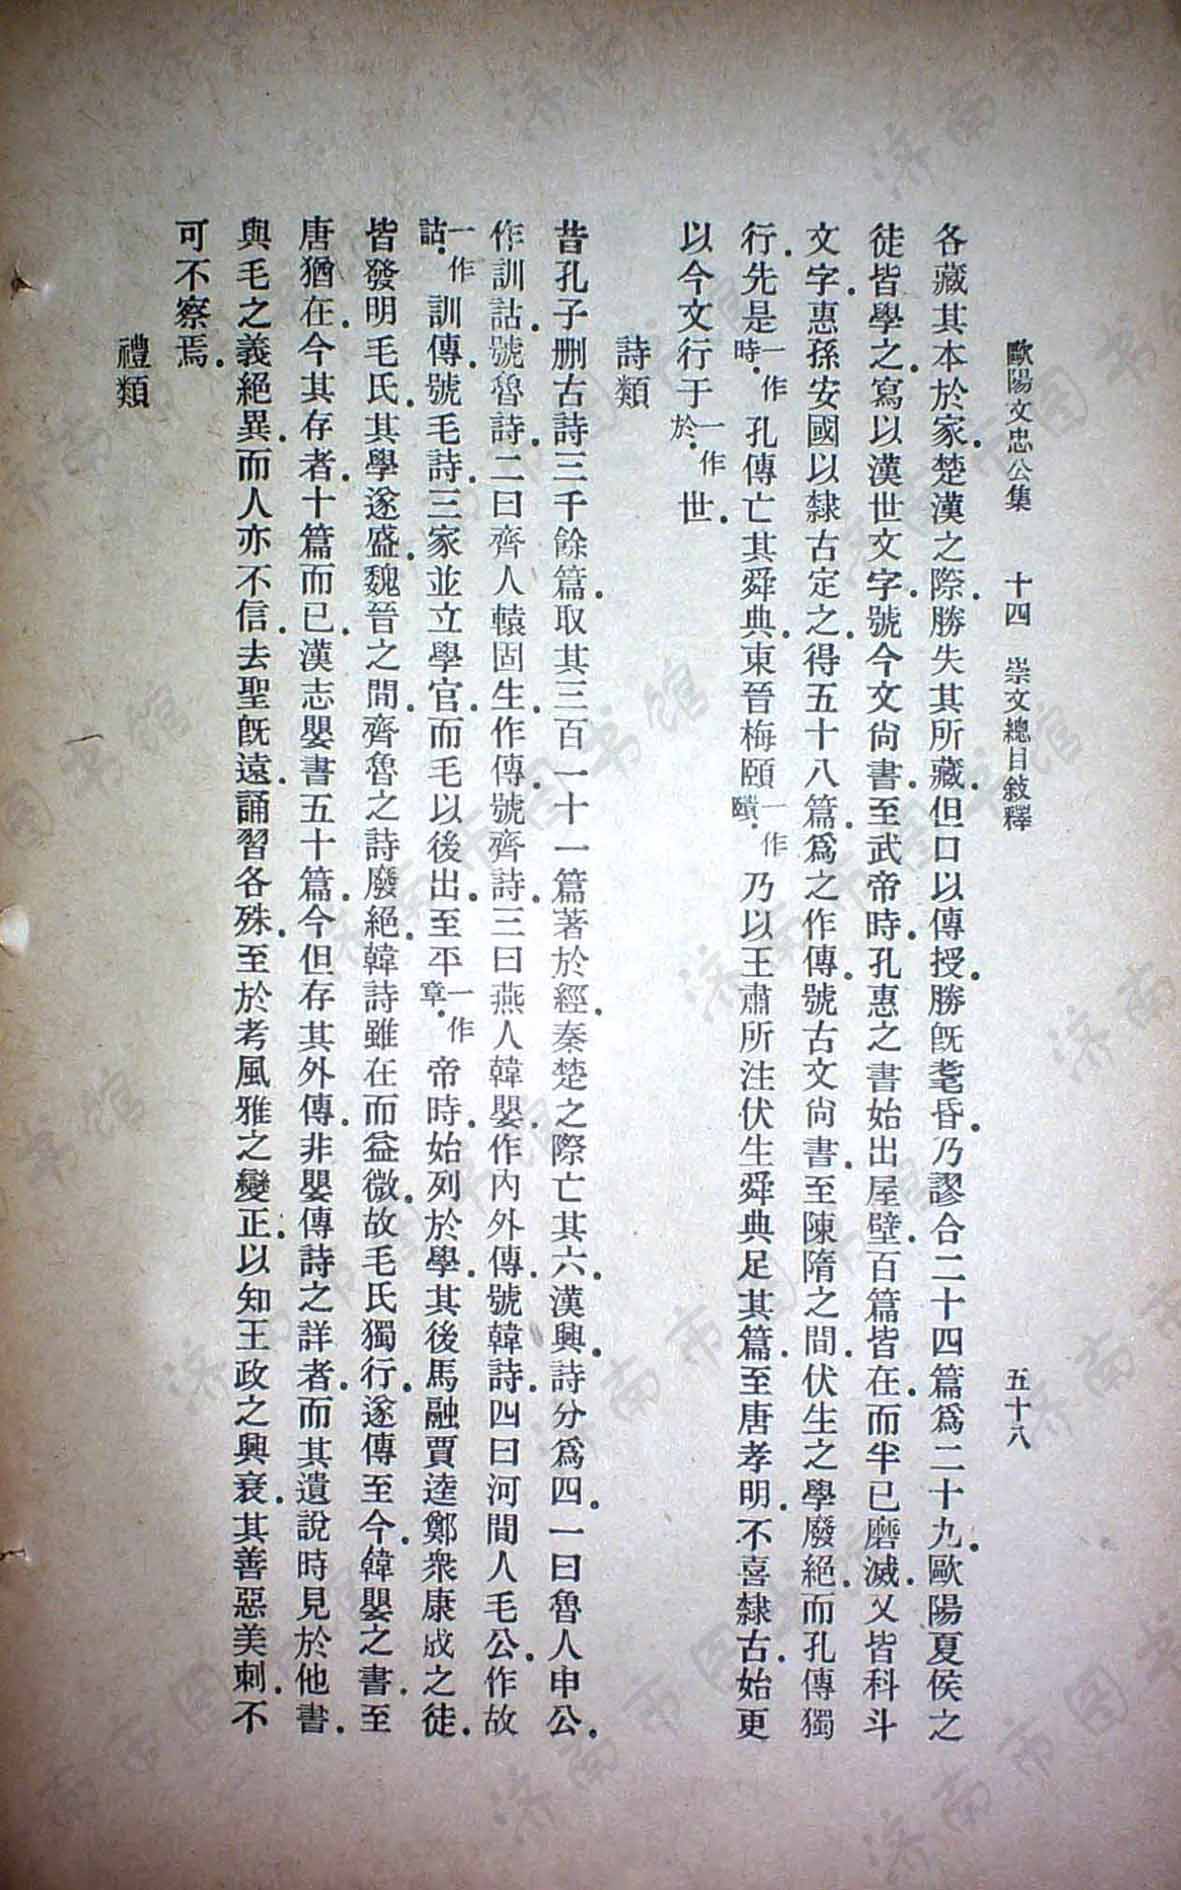 歐陽文忠公集　十四　崇文總目敍釋　五十八
各藏其本於家．楚漢之際．勝失其所藏．但口以傳授．勝旣耄昏．乃謬合二十四篇爲二十九．歐陽夏侯之
徒皆學之．寫以漢世文字．號今文尙書．至武帝時．孔惠之書始出屋壁．百篇皆在．而半已磨滅．又皆科斗
文字．惠孫安國以隸古定之．得五十八篇．爲之作傳．號古文尙書．至陳隋之間．伏生之學廢絕．而孔傳獨
行．先是一作時．孔傳亡其舜典．東晉梅頤一作賾．乃以王肅所注伏生舜典足其篇．至唐孝明．不喜隸古．始更
以今文行于一作於．世．
詩類
昔孔子删古詩三千餘篇．取其三百一十一篇著於經．秦楚之際亡其六．漢興．詩分爲四．一曰魯人申公．
作訓詁．號魯詩．二曰齊人轅固生．作傳．號齊詩．三曰燕人韓嬰．作內外傳．號韓詩．四曰河間人毛公．作故
一作詁．訓傳．號毛詩．三家並立學官．而毛以後出．至平一作章．帝時．始列於學．其後馬融賈逵鄭衆康成之徒．
皆發明毛氏．其學遂盛．魏晉之間．齊魯之詩廢絕．韓詩雖在而益微．故毛氏獨行．遂傳至今．韓嬰之書．至
唐猶在．今其存者．十篇而已．漢志嬰書五十篇．今但存其外傳．非嬰傳詩之詳者．而其遺說時見於他書．
與毛之義絕異．而人亦不信．去聖旣遠．誦習各殊．至於考風雅之變正．以知王政之興衰．其善惡美刺．不
可不察焉．
禮類
济南市图书馆